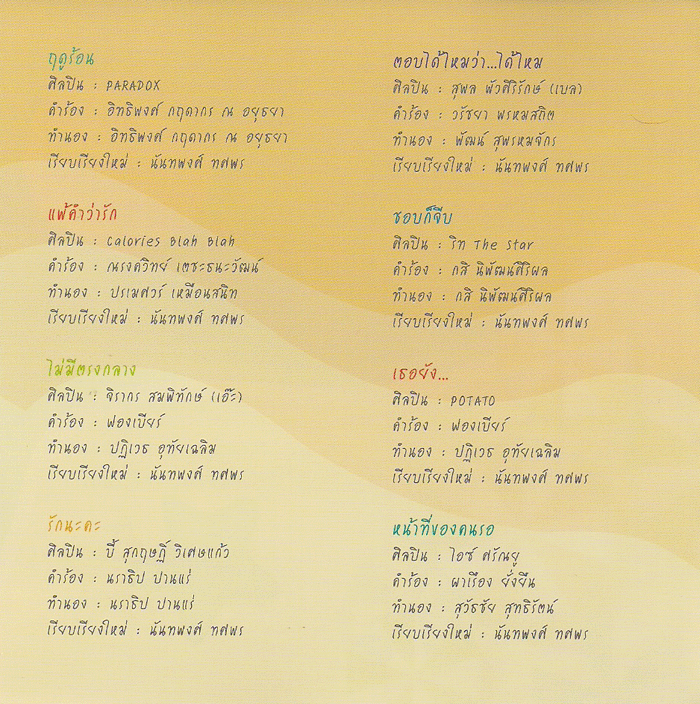 ฤดูร้อน
ศิลปิน : PARADOX
คำร้อง : อิทธิพงศ์ กฤดากร ณ อยุธยา
ทำนอง : อิทธิพงศ์ กฤดากร ณ อยุธยา
เรียบเรียงใหม่ : นันทพงศ์ ทศพร
แพ้คำว่ารัก
ศิลปิน : Calories Blah Blah
คำร้อง : ณรงควิทย์ เตชะธนะวัฒน์
ทำนอง : ปรเมศวร์ เหมือนสนิท
เรียบเรียงใหม่ : นันทพงศ์ ทศพร
ไม่มีตรงกลาง
ศิลปิน : จิรากร สมพิทักษ์ (เอ๊ะ)
คำร้อง : ฟองเบียร์
ทำนอง : ปฏิเวธ อุทัยเฉลิม
เรียบเรียงใหม่ : นันทพงศ์ ทศพร
รักนะคะ
ศิลปิน : บี้ สุกฤษฎิ์ วิเศษแก้ว
คำร้อง : นราธิป ปานแร่
ทำนอง : นราธิป ปานแร่
เรียบเรียงใหม่ : นันทพงศ์ ทศพร
ตอบได้ไหมว่า...ได้ไหม
ศิลปิน : สุพล พัวศิริรักษ์ (เบล)
คำร้อง : วรัชยา พรหมสถิต
ทำนอง : พัฒน์ สุพรหมจักร
เรียบเรียงใหม่ : นันทพงศ์ ทศพร
ชอบก็จีบ
ศิลปิน : ริท The Star
คำร้อง : กสิ นิพัฒน์ศิริผล
ทำนอง : กสิ นิพัฒน์ศิริผล
เรียบเรียงใหม่ : นันทพงศ์ ทศพร
เธอยัง...
ศิลปิน : POTATO
คำร้อง : ฟองเบียร์
ทำนอง : ปฏิเวธ อุทัยเฉลิม
เรียบเรียงใหม่ : นันทพงศ์ ทศพร
หน้าที่ของคนรอ
ศิลปิน : ไอซ์ ศรัณยู
คำร้อง : ผาเรือง ยั่งยืน
ทำนอง : สุวัธชัย สุทธิรัตน์
เรียบเรียงใหม่ : นันทพงศ์ ทศพร